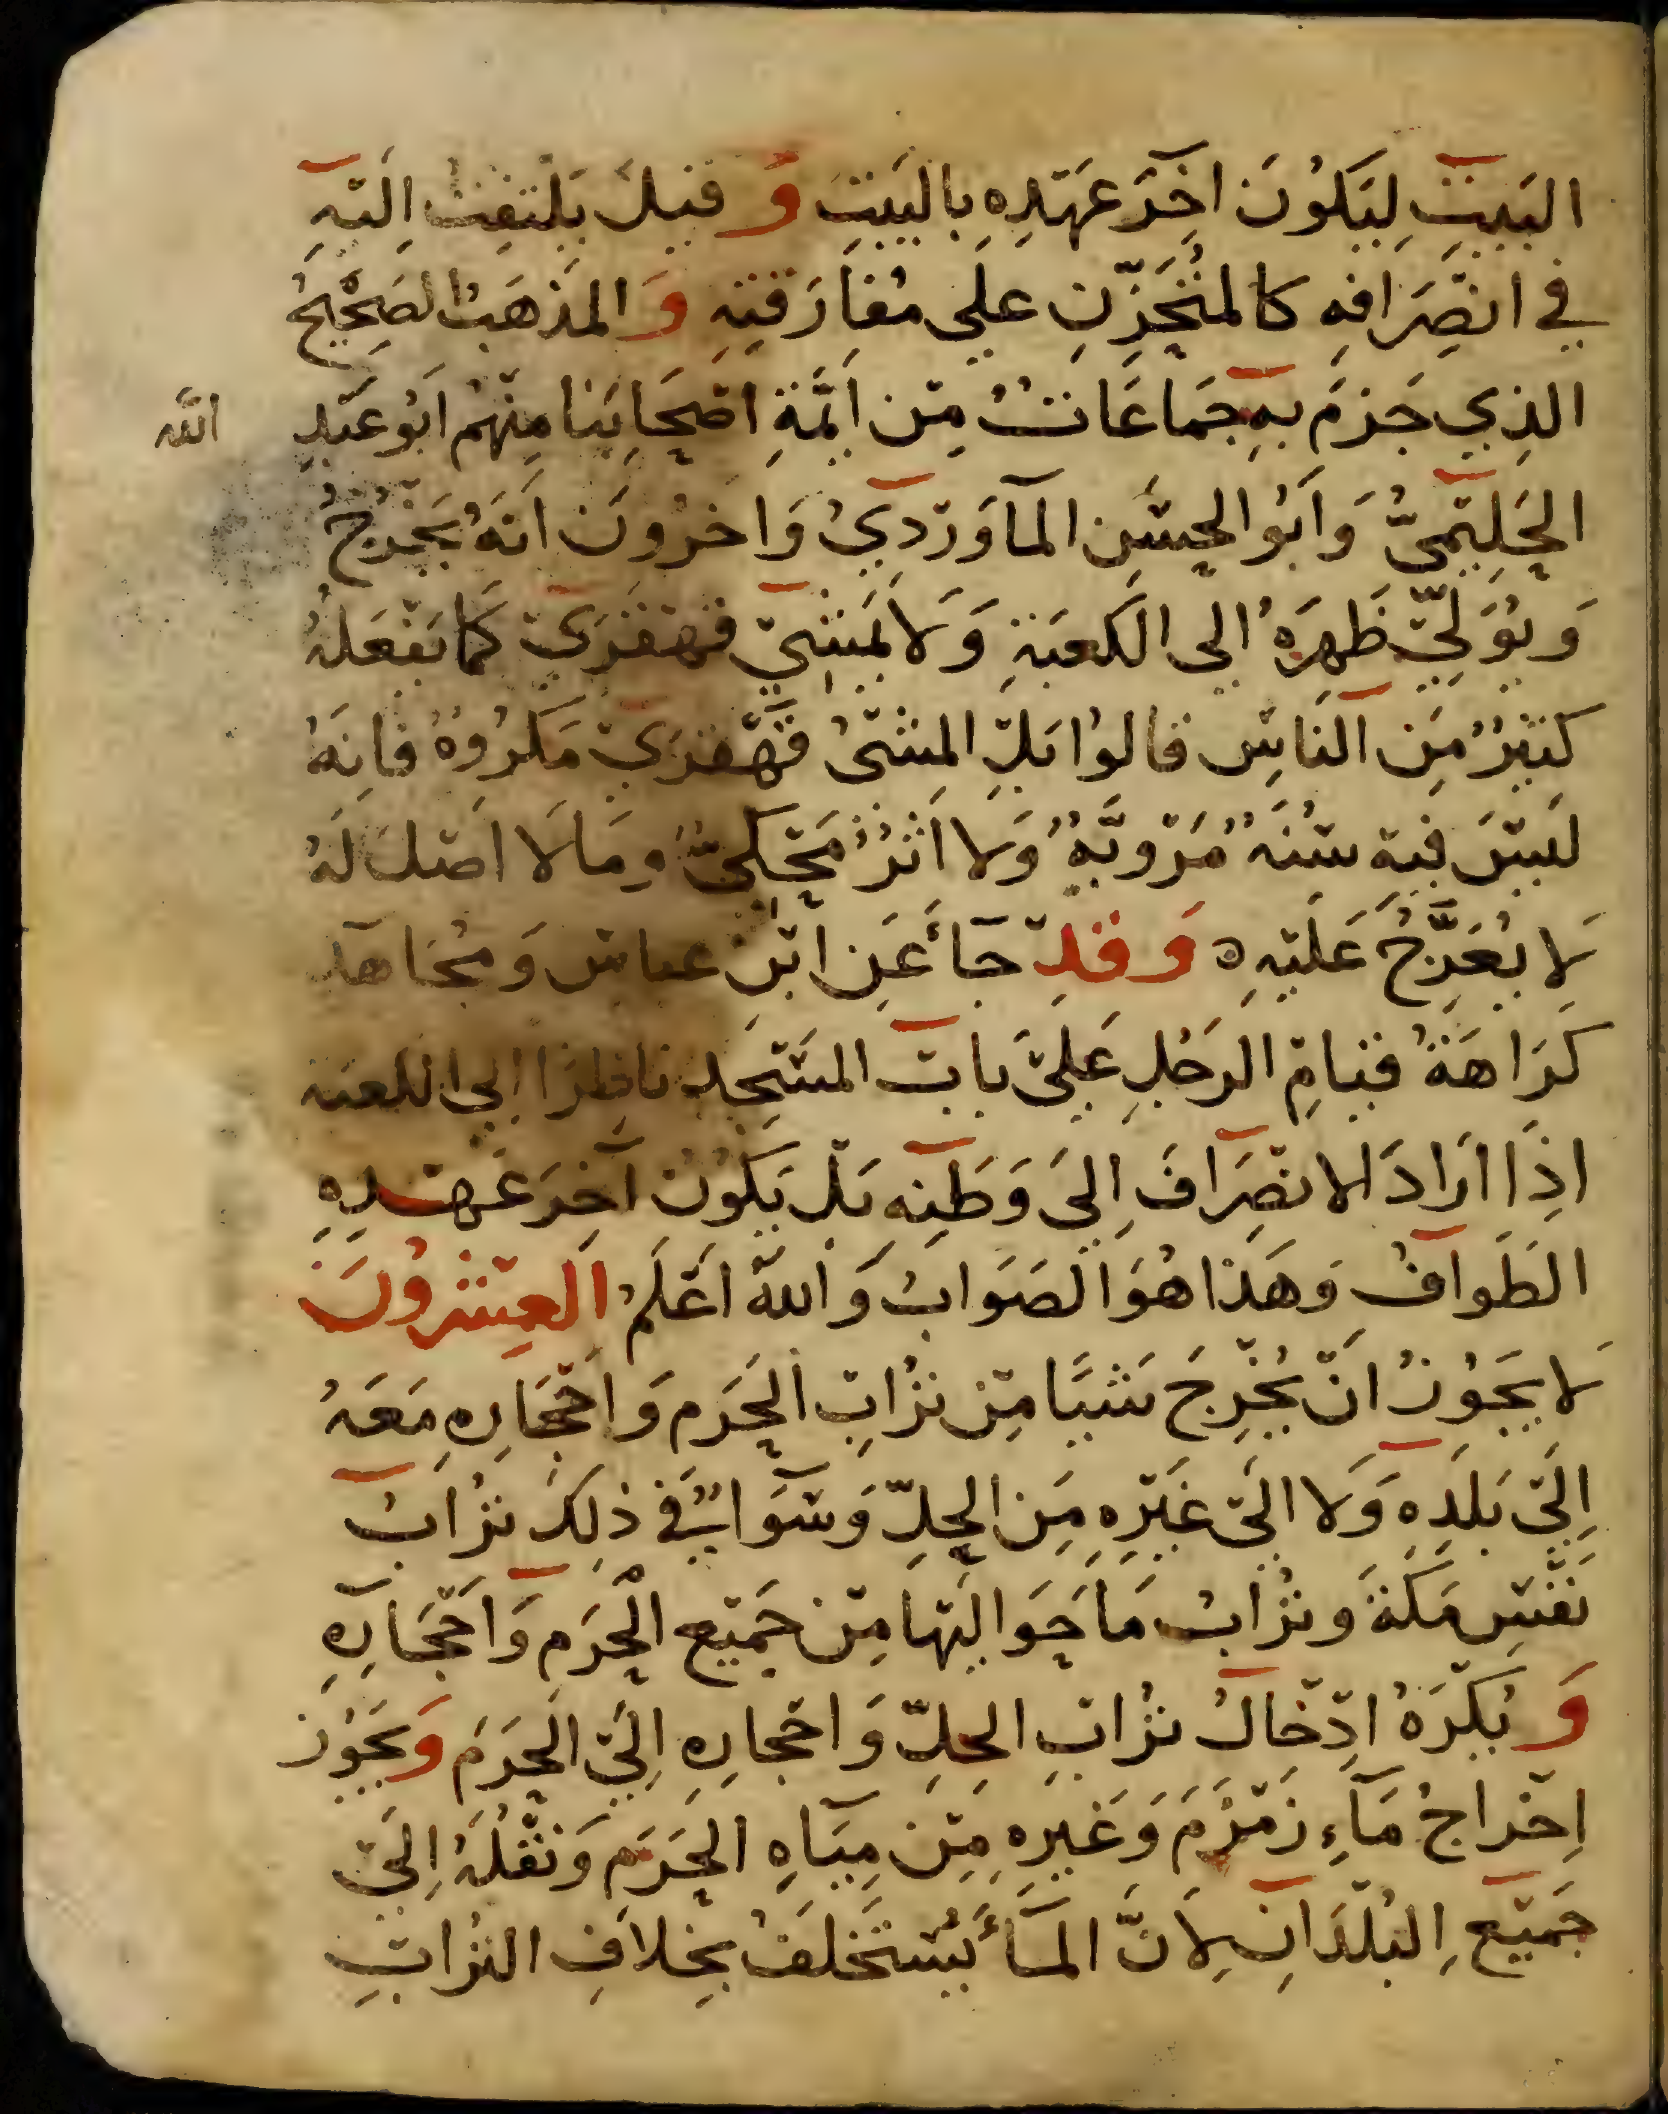 البَيْتِ لِيَكُونَ اخِرَ عَهْدِهِ بِالبَيْتِ وَقيلَ يَلْتَفِتُ اِلَيْهِ
في انْصِرَافِهِ كالمُتَحَزِّنِ على مُفَارَقَتِهِ وَالمَذْهَبُ الصَحِيْحُ
الذِي جَزمَ بهِ جَمَاعَاتٌ مِنْ اَئِمَّةِ اصْحَابِنَا مِنْهُم اَبُو عَبْدِ الله
الحَلِيْمِيُّ وَاَبُو الحسَنِ المَاوَرْدِيُ وَاخرُونَ انَهُ يَخْرُجُ
وَيُوَلِّيْ ظَهرَهُ الى الكَعبَةِ وَلَا يَمشِيْ قهقَرَىْ كَمَا يَفْعَلُهُ
كَثيرٌ مِنَ النَاسِ قالوُا بَلِ المشْىُ قَهْقرَىْ مَكرُوهٌ فاِنَهُ
لَيْسَ فيهِ سُنَةٌ مَرْويَّةٌ وَلا اَثرٌ مَحْكىٌّ وَمَا لَا اَصْلَ لَهُ
لَا يُعَرَّجُ عَلَيْهِ ه وَقدْ جَاءَ عَنِ ابْنِ عباسٍ وَمُجَاهد
كَرَاهَةُ قيَامِ الرَجُلِ عَلىَ بابِ المَسْجِدِ نَاظِرًا الى الكعبة
اذِاَ ارَادَ الانصِرَافَ اِلىَ وَطَنِهِ بَلْ يَكُونُ اَخِرَ عَهْدِهِ
الطَوافُ وَهَذا هُوَ الصَوَابُ وَاللهُ اَعْلَمُ العِشْرُونَ
لَا يَجُوزُ انْ يُخْرِجَ شَيئًا مِنْ تُرَابِ الحَرَمِ وَاحْجَارِهِ مَعَهُ
اِلَىْ بَلَدِهِ وَلا الَىْ غَيْرِهِ مِنَ الحِلِّ وَسَوَاءٌ في ذلِكَ تُرَابُ
نَفْسِ مَكَةَ وتُرَابُ مَا حَوَاليْهَا مِنْ جَميْعِ الْحَرَمِ وَاَحْجَارِهِ
وَيُكْرَهُ ادِخَالُ تُرَابِ الحِلِّ وَاحْجارِهِ اِلَى الحَرَمِ وَيَجُوز
اِخْراجُ مَآءِ زَمْزَمَ وَغَيرِهِ مِنْ مِيَاهِ الحَرَمِ وَنَقْلُهُ اِلَىْ
جَميْعِ البُلْدَانِ لِاَنَّ المَاءَ يُسْتَخْلَفُ بِخلَافِ التُرَابِ